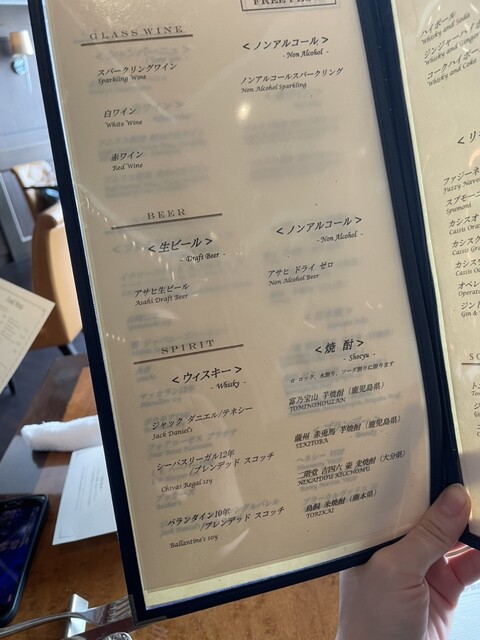 FREE
GLASS WINE
スパークリングワイン
Sparkling Wine
白ワイン
White Wine
赤ワイン
Red Wine
<ノンアルコール>
- Non Alcohol -
ノンアルコールスパークリング
Non Alcohol Sparkling
BEER
<生ビール>
- Draft Beer -
アサヒ生ビール
Asahi Draft Beer
<ノンアルコール>
- Non Alcohol -
アサヒ ドライ ゼロ
Non Alcohol Beer
SPIRIT
<ウィスキー>
- Whisky -
ジャック ダニエル/テネシー
Jack Daniel's
シーバスリーガル12年
/ブレンデッド スコッチ
Chivas Regal 12y
バランタイン10年
/ブレンデッド スコッチ
Ballantine's 10y
<焼 酎>
- Shocyu -
☆ ロック、水割り、ソーダ割りに限ります
富乃宝山 芋焼酎 (鹿児島県)
TOMINOHOUZAN
薩州 赤兎馬 芋焼酎 (鹿児島県)
SEKITOBA
二階堂 吉四六 壷 麦焼酎 (大分県)
鳥飼 米焼酎 (熊本県)
TORIKAI
ハイボール
Whisky and Soda
ジンジャーハイボ
Whisky and Ginger
コークハイボー
Whisky and Coke
<リ
ファジーネ
Fuzzy Nave
スプモーニ
Spumoni
カシスオ
Cassis Ora
カシスグ
Cassis Gr
カシスウ
Cassis Oo
オペレ
Operat
ジント
Gin &